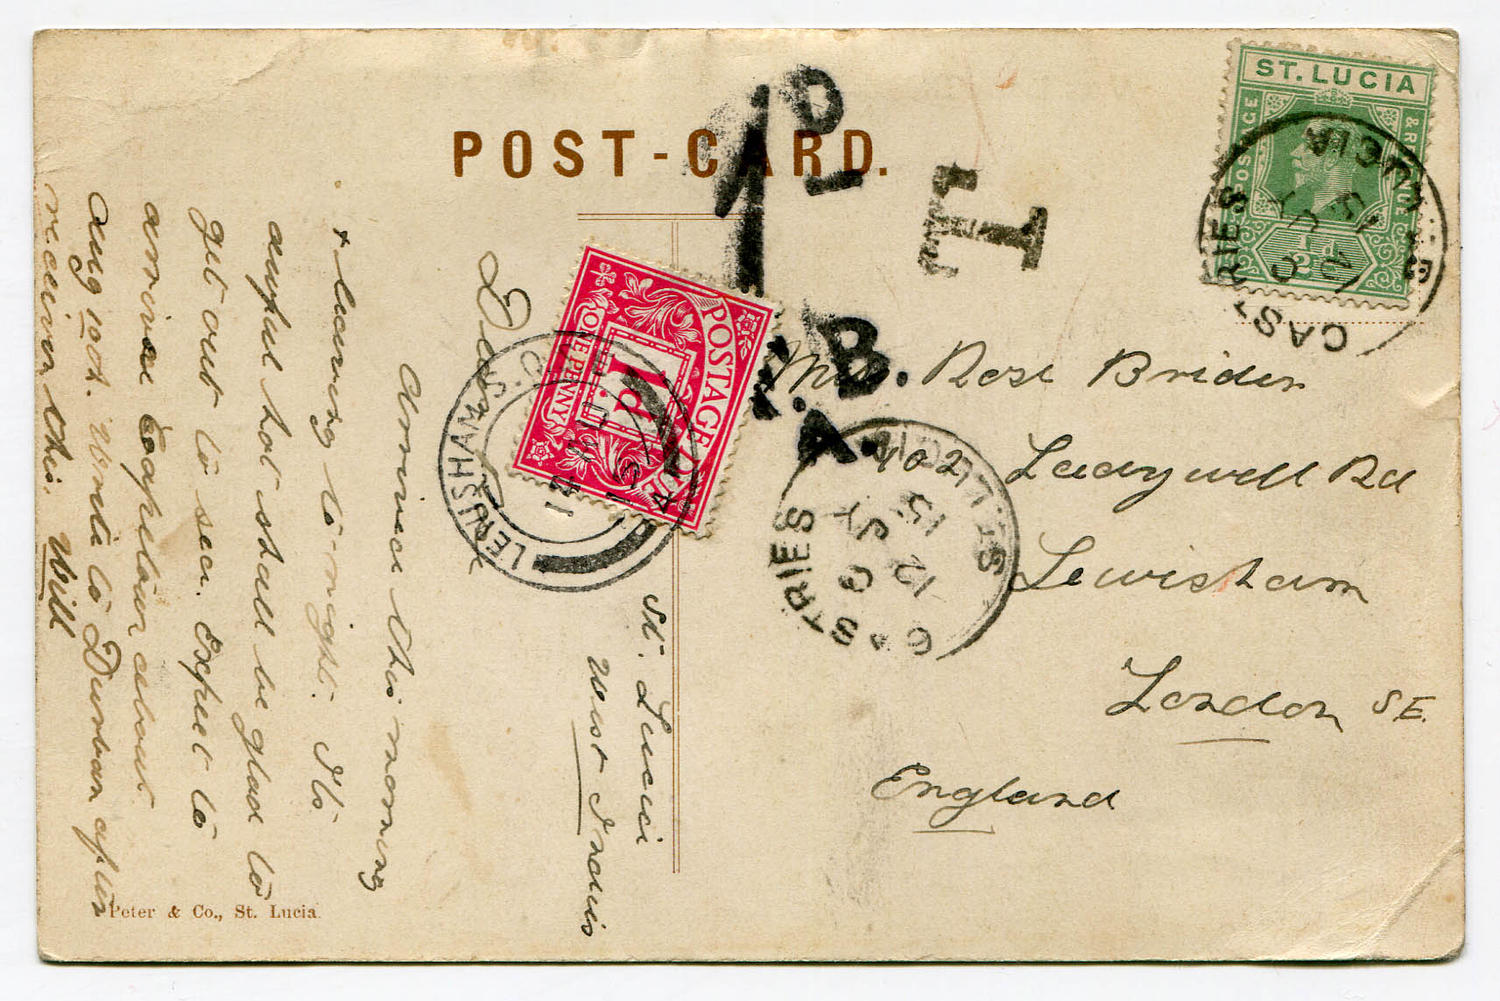 POST-CARD.
1D
T
I.B.
A.
ST. LUCIA
POSTAGE
& REVENUE
½d
CASTRIES
ST. LUCIA
12 JY
15
POSTAGE DUE
ONE PENNY
1d.
LEWISHAM S.O.
St. Lucia
West Indies
Dear
Arrived this morning
+ leaving to-night. Its
awful hot shall be glad to
get out to sea. Expect to
arrive Capetown about
Aug 10th. Write to Durban after
receiving this. Will
Miss Rose Briden
402 Ladywell Rd
Lewisham
London SE.
England
CASTRIES
ST. LUCIA
12 JY
15
Peter & Co., St. Lucia.